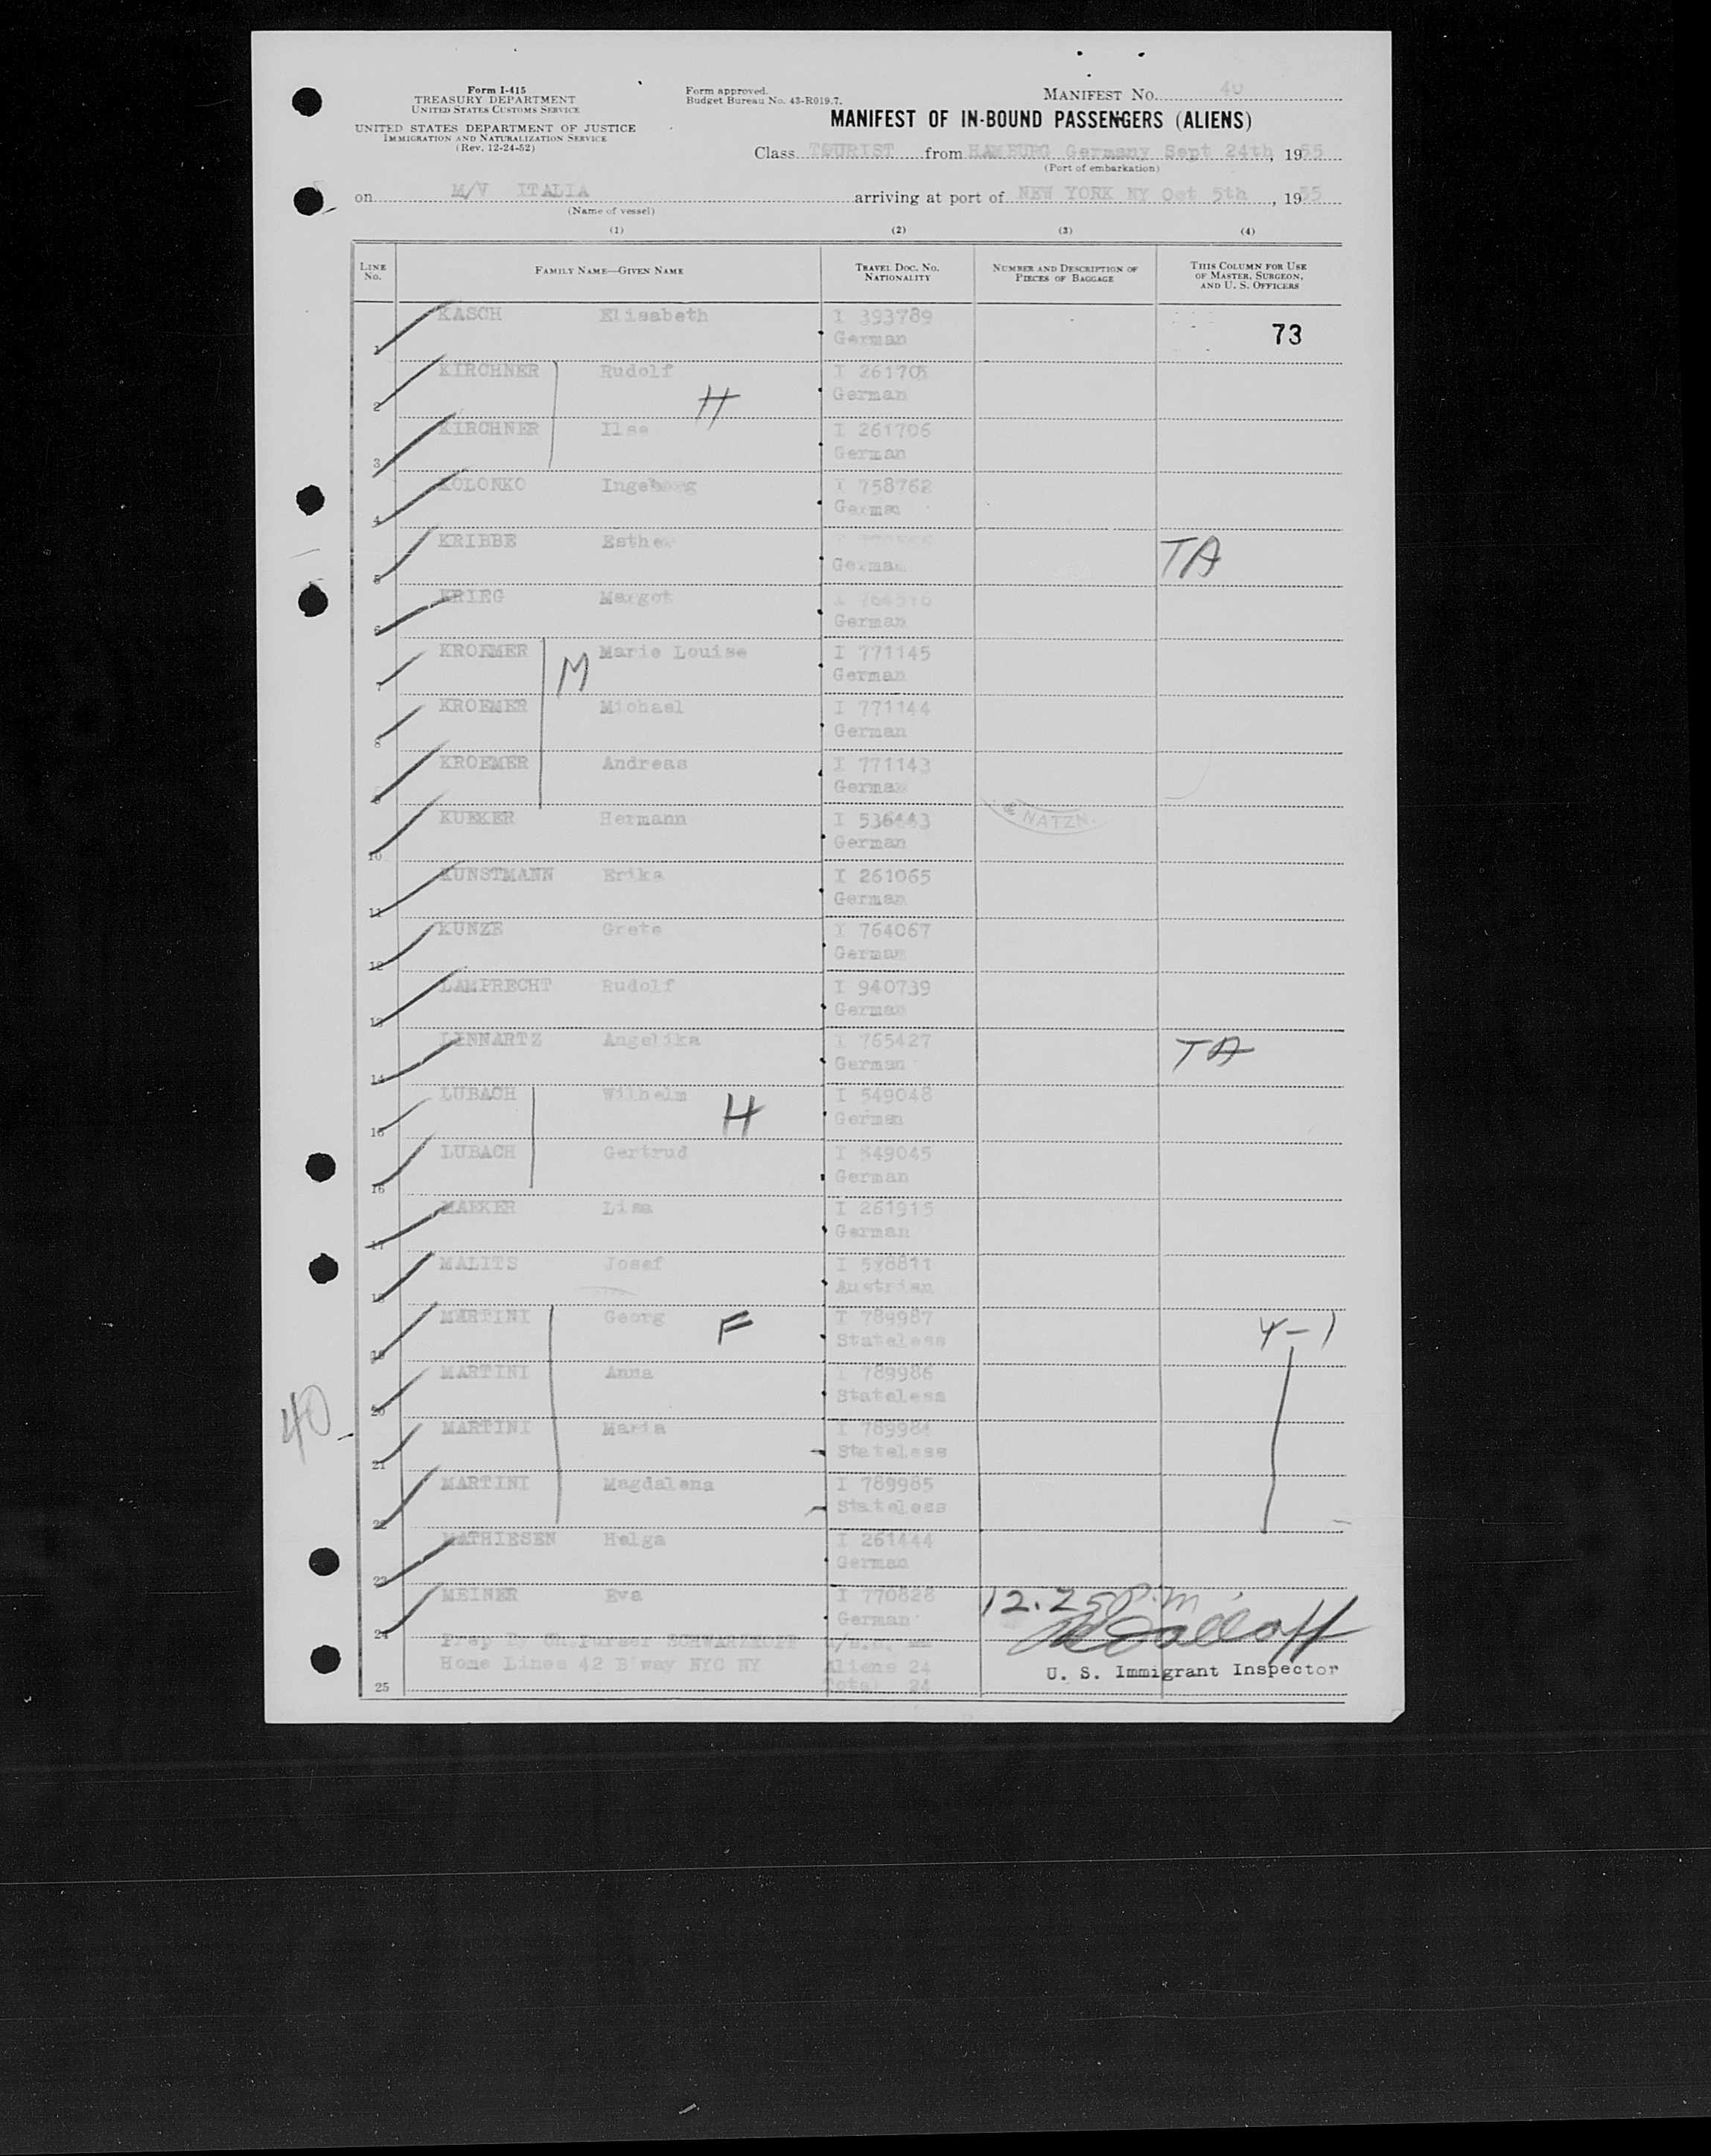 Form I-415
TREASURY DEPARTMENT
UNITED STATES CUSTOMS SERVICE
UNITED STATES DEPARTMENT OF JUSTICE
IMMIGRATION AND NATURALIZATION SERVICE
(Rev. 12-24-52)
Form approved.
Budget Bureau No. 43-R019.7.
MANIFEST NO. 40
MANIFEST OF IN-BOUND PASSENGERS (ALIENS)
Class TOURIST from HAMBURG Germany Sept 24th, 1955
(Port of embarkation)
on M/V ITALIA arriving at port of NEW YORK NY Oct 5th, 1955
(Name of vessel)
(1) (2) (3) (4)
LINE No. FAMILY NAME—GIVEN NAME TRAVEL DOC. NO. NATIONALITY NUMBER AND DESCRIPTION OF PIECES OF BAGGAGE THIS COLUMN FOR USE OF MASTER, SURGEON, AND U. S. OFFICERS
1 KASCH Elisabeth I 393789 73
German
2 KIRCHNER Rudolf H I 261705
German
3 KIRCHNER Ilse I 261706
German
4 KOLONKO Ingeborg I 758762
German
5 KRIBBE Esther TA
German
6 KRIEG Margot I
German
7 KROEMER M Marie Louise I 771145
German
8 KROEMER Michael I 771144
German
9 KROEMER Andreas I 771143
German
& NATZN.
10 KUEKER Hermann I 536443
German
11 KUNSTMANN Erika I 261065
German
12 KUNZE Grete I 764067
German
13 LAMPRECHT Rudolf I 940739
German
14 LENNARTZ Angelika I 765427 TA
German
15 LUBACH Wilhelm H I 549048
German
16 LUBACH Gertrud I 549045
German
17 MAEKER Lisa I 261915
German
18 MALITS Josef I
Austrian
19 MARTINI Georg F I 789987 4-1
Stateless
20 MARTINI Anna I 789986
Stateless
40
21 MARTINI Maria I 789984
Stateless
22 MARTINI Magdalena I 789985
Stateless
23 MATHIESEN Helga I 261444
German
24 MEINER Eva I 770828 12.25 P.M.
German
Prep By Ch.Purser SCHWARZKOPF
Home Lines 42 B'way NYC NY Aliens 24
U. S. Immigrant Inspector
25 Total 24